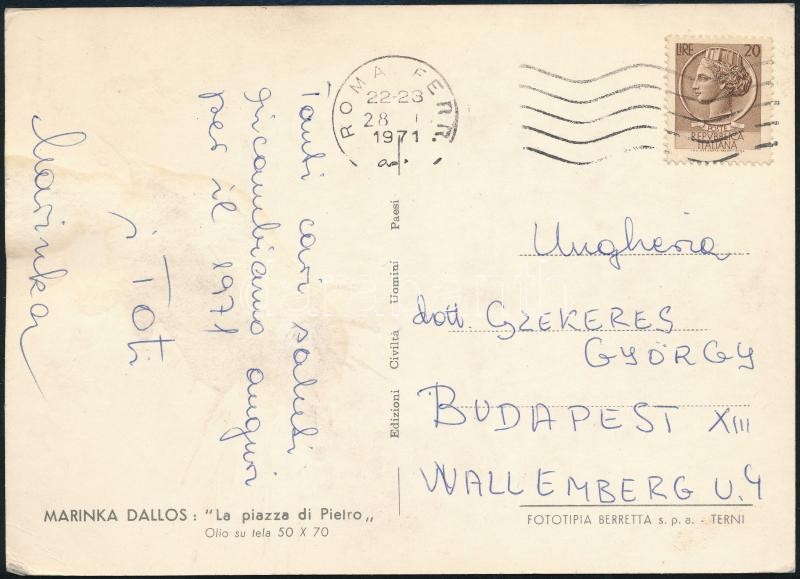 Tanti cari saluti
ricambiamo auguri
per il 1971
i Toti
Marinka
ROMA FERR.
22-23
28 I
1971
LIRE 20
POSTE
REPVBBLICA
ITALIANA
Ungheria
dott. SZEKERES
GYÖRGY
BUDAPEST XIII
WALLEMBERG U. 4
Edizioni Civiltà Uomini Paesi
MARINKA DALLOS: "La piazza di Pietro„
Olio su tela 50 X 70
FOTOTIPIA BERRETTA s. p. a. - TERNI
darabanth